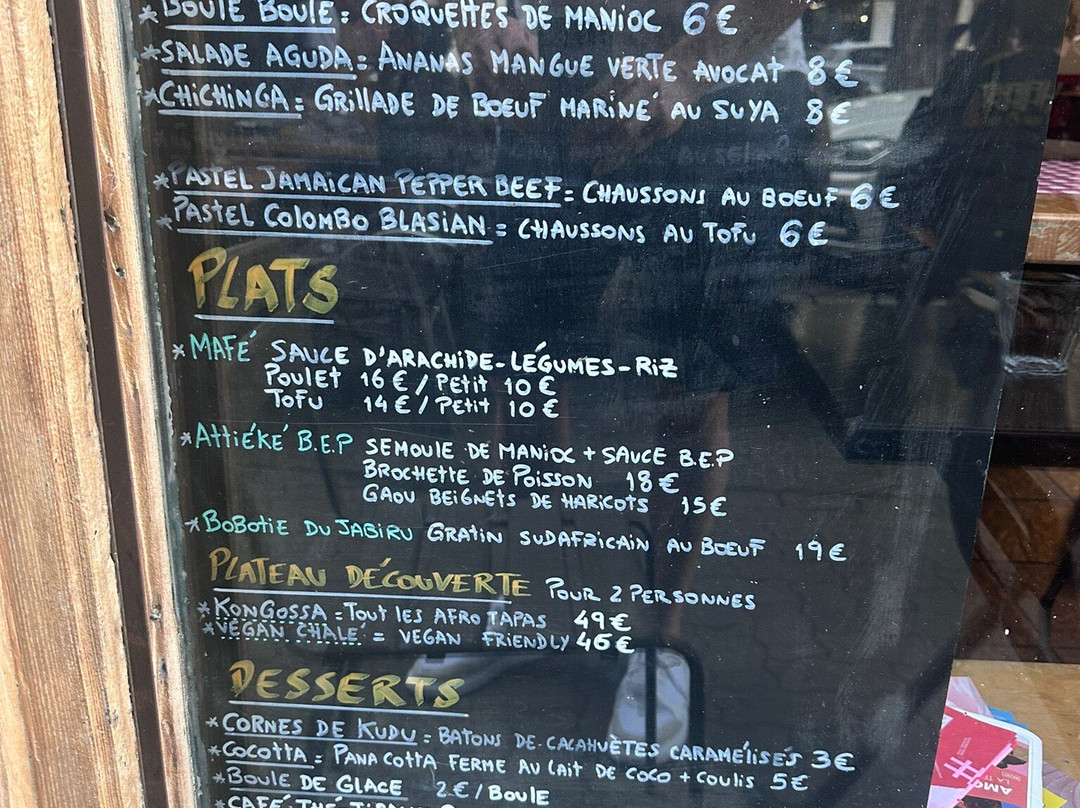 * BOULE BOULE = CROQUETTES DE MANIOC 6 €
* SALADE AGUDA = ANANAS MANGUE VERTE AVOCAT 8 €
* CHICHINGA = GRILLADE DE BOEUF MARINÉ AU SUYA 8 €
* PASTEL JAMAICAN PEPPER BEEF = CHAUSSONS AU BOEUF 6 €
* PASTEL COLOMBO BLASIAN = CHAUSSONS AU TOFU 6 €
PLATS
* MAFÉ SAUCE D'ARACHIDE - LÉGUMES - RIZ
POULET 16 € / PETIT 10 €
TOFU 14 € / PETIT 10 €
* ATTIÉKÉ B.E.P SEMOULE DE MANIOC + SAUCE B.E.P
BROCHETTE DE POISSON 18 €
GAOU BEIGNETS DE HARICOTS 15 €
* BOBOTIE DU JABIRU GRATIN SUDAFRICAIN AU BOEUF 19 €
PLATEAU DÉCOUVERTE POUR 2 PERSONNES
* KONGOSSA = TOUT LES AFRO TAPAS 49 €
* VEGAN CHALÉ = VEGAN FRIENDLY 46 €
DESSERTS
* CORNES DE KUDU = BATONS DE CACAHUÈTES CARAMÉLISÉS 3 €
* COCOTTA = PANA COTTA FERME AU LAIT DE COCO + COULIS 5 €
* BOULE DE GLACE 2 € / BOULE
* CAFÉ THÉ